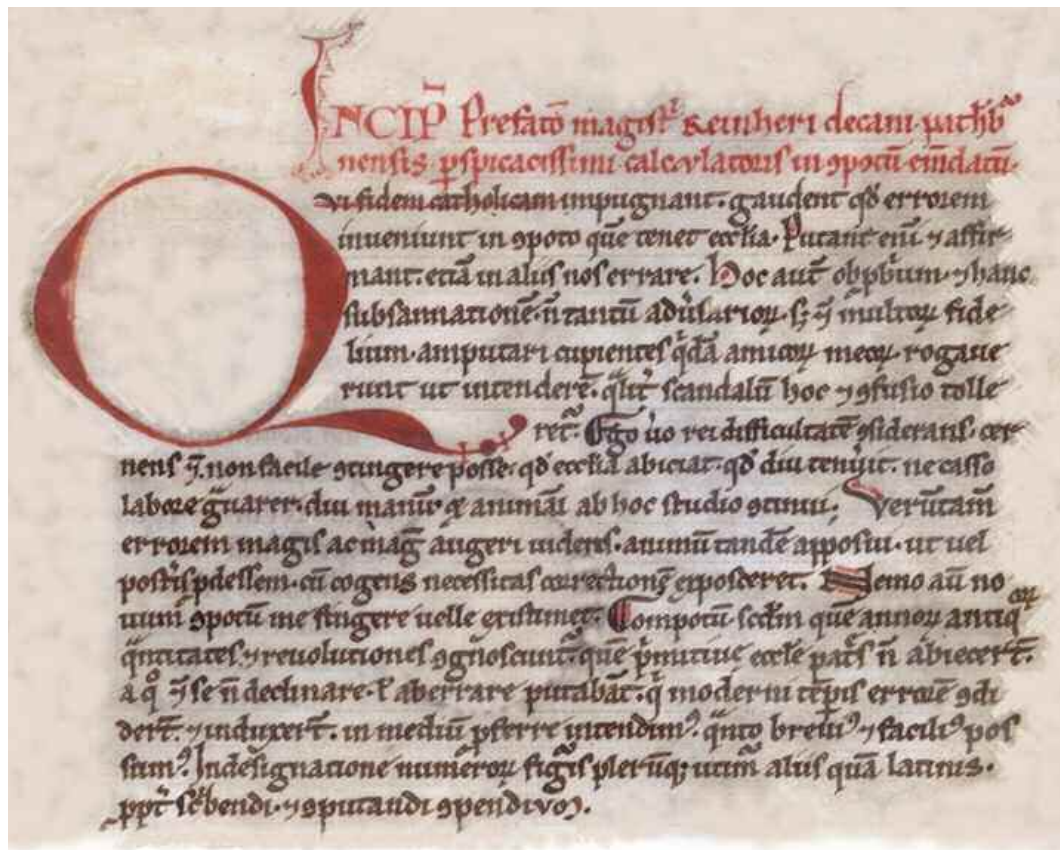 INCIP̅ Prefatō magistˡ Reinheri decani path̄b̾
nensis ꝑspicacissimi calculatoris in ꝯpotū em̄datū.
Qui fidem catholicam impugnant. gaudent qđ errorem
inueniunt in ꝯpoto quē tenet eccl̄ia. Putant enī ⁊ affir
mant. etiā in aliis nos errare. Hoc aut̄ obꝓbrium. ⁊ hanc
subsannationē. n̄ tantū aduersarioꝝ. sꝫ ⁊ multoꝝ fide
lium. amputari cupientes q̇dā amicoꝝ meoꝝ. rogaue
runt ut intenderē. qͣlit̾ scandalū hoc ⁊ ꝯfusio tolle
ret᷑. Ego u̾o rei difficultatē ꝯsiderans. cer
nens ⁊ non facile ꝯtingere posse. qđ eccl̄ia abiciat. qđ diu tenuit. ne casso
labore gͣuarer. diu manū ⁊ animū ab hoc studio ꝯtinui. Verūtam̄
errorem magis ac maḡ augeri uidens. animū tandē apposui. ut uel
post̾is ꝓdessem. cū cogens necessitas correctionē exposceret. Nemo aū no
uum ꝯpotū me fingere uelle existimet. Compotū scđm quē annoꝝ antiqͦꝝ
qͣntitates. ⁊ reuolutiones ꝯgnoscunt᷑. quē pͥmitiue eccl̄e pat̾s n̄ abiecer̄t.
a qͦ ⁊ se n̄ declinare. ł aberrare putabāt. qͥ moderni tēpis errorē ꝯdi
der̄t. ⁊ induxer̄t. in mediū ꝓferre intendimꝰ. qͣnto breuiꝰ ⁊ faciliꝰ pos
sumꝰ. In designatione numeroꝝ figͥs plerūqꝫ utim̾ aliis quā latinis.
ꝓpt̾ sc̾bendi. ⁊ ꝯputandi ꝯpendiuꝫ.